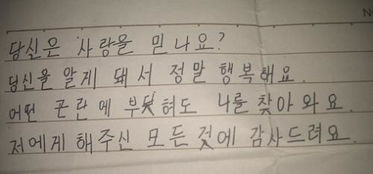 당신은 사랑을 믿나요?
당신을 알게 돼서 정말 행복해요.
어떤 곤란에 부딪혀도 나를 찾아와요.
저에게 해주신 모든 것에 감사드려요.